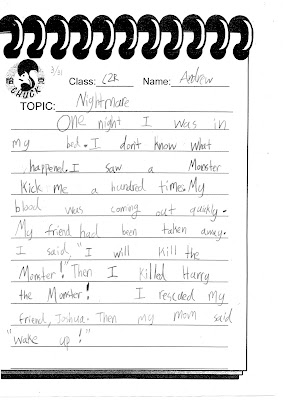 3/31
哈 克
CHUCK
Class: C2R Name: Andrew
TOPIC: Nightmare
One night I was in
my bed. I don't know what
happened. I saw a Monster
Kick me a hundred times. My
blood was coming out quickly.
My friend had been taken away.
I said, "I will kill the
Monster!" Then I killed Harry
the Monster! I rescued my
friend, Joshua. Then my mom said
"wake up!"